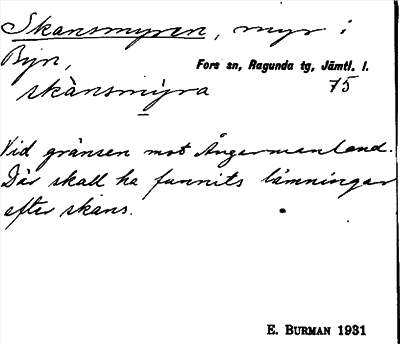 Skansmyren, myr i
Byn,
Fors sn, Ragunda tg, Jämtl. l.
skànsmỳra
75
Vid gränsen mot Ångermanland.
Där skall ha funnits lämningar
efter skans.
E. BURMAN 1931